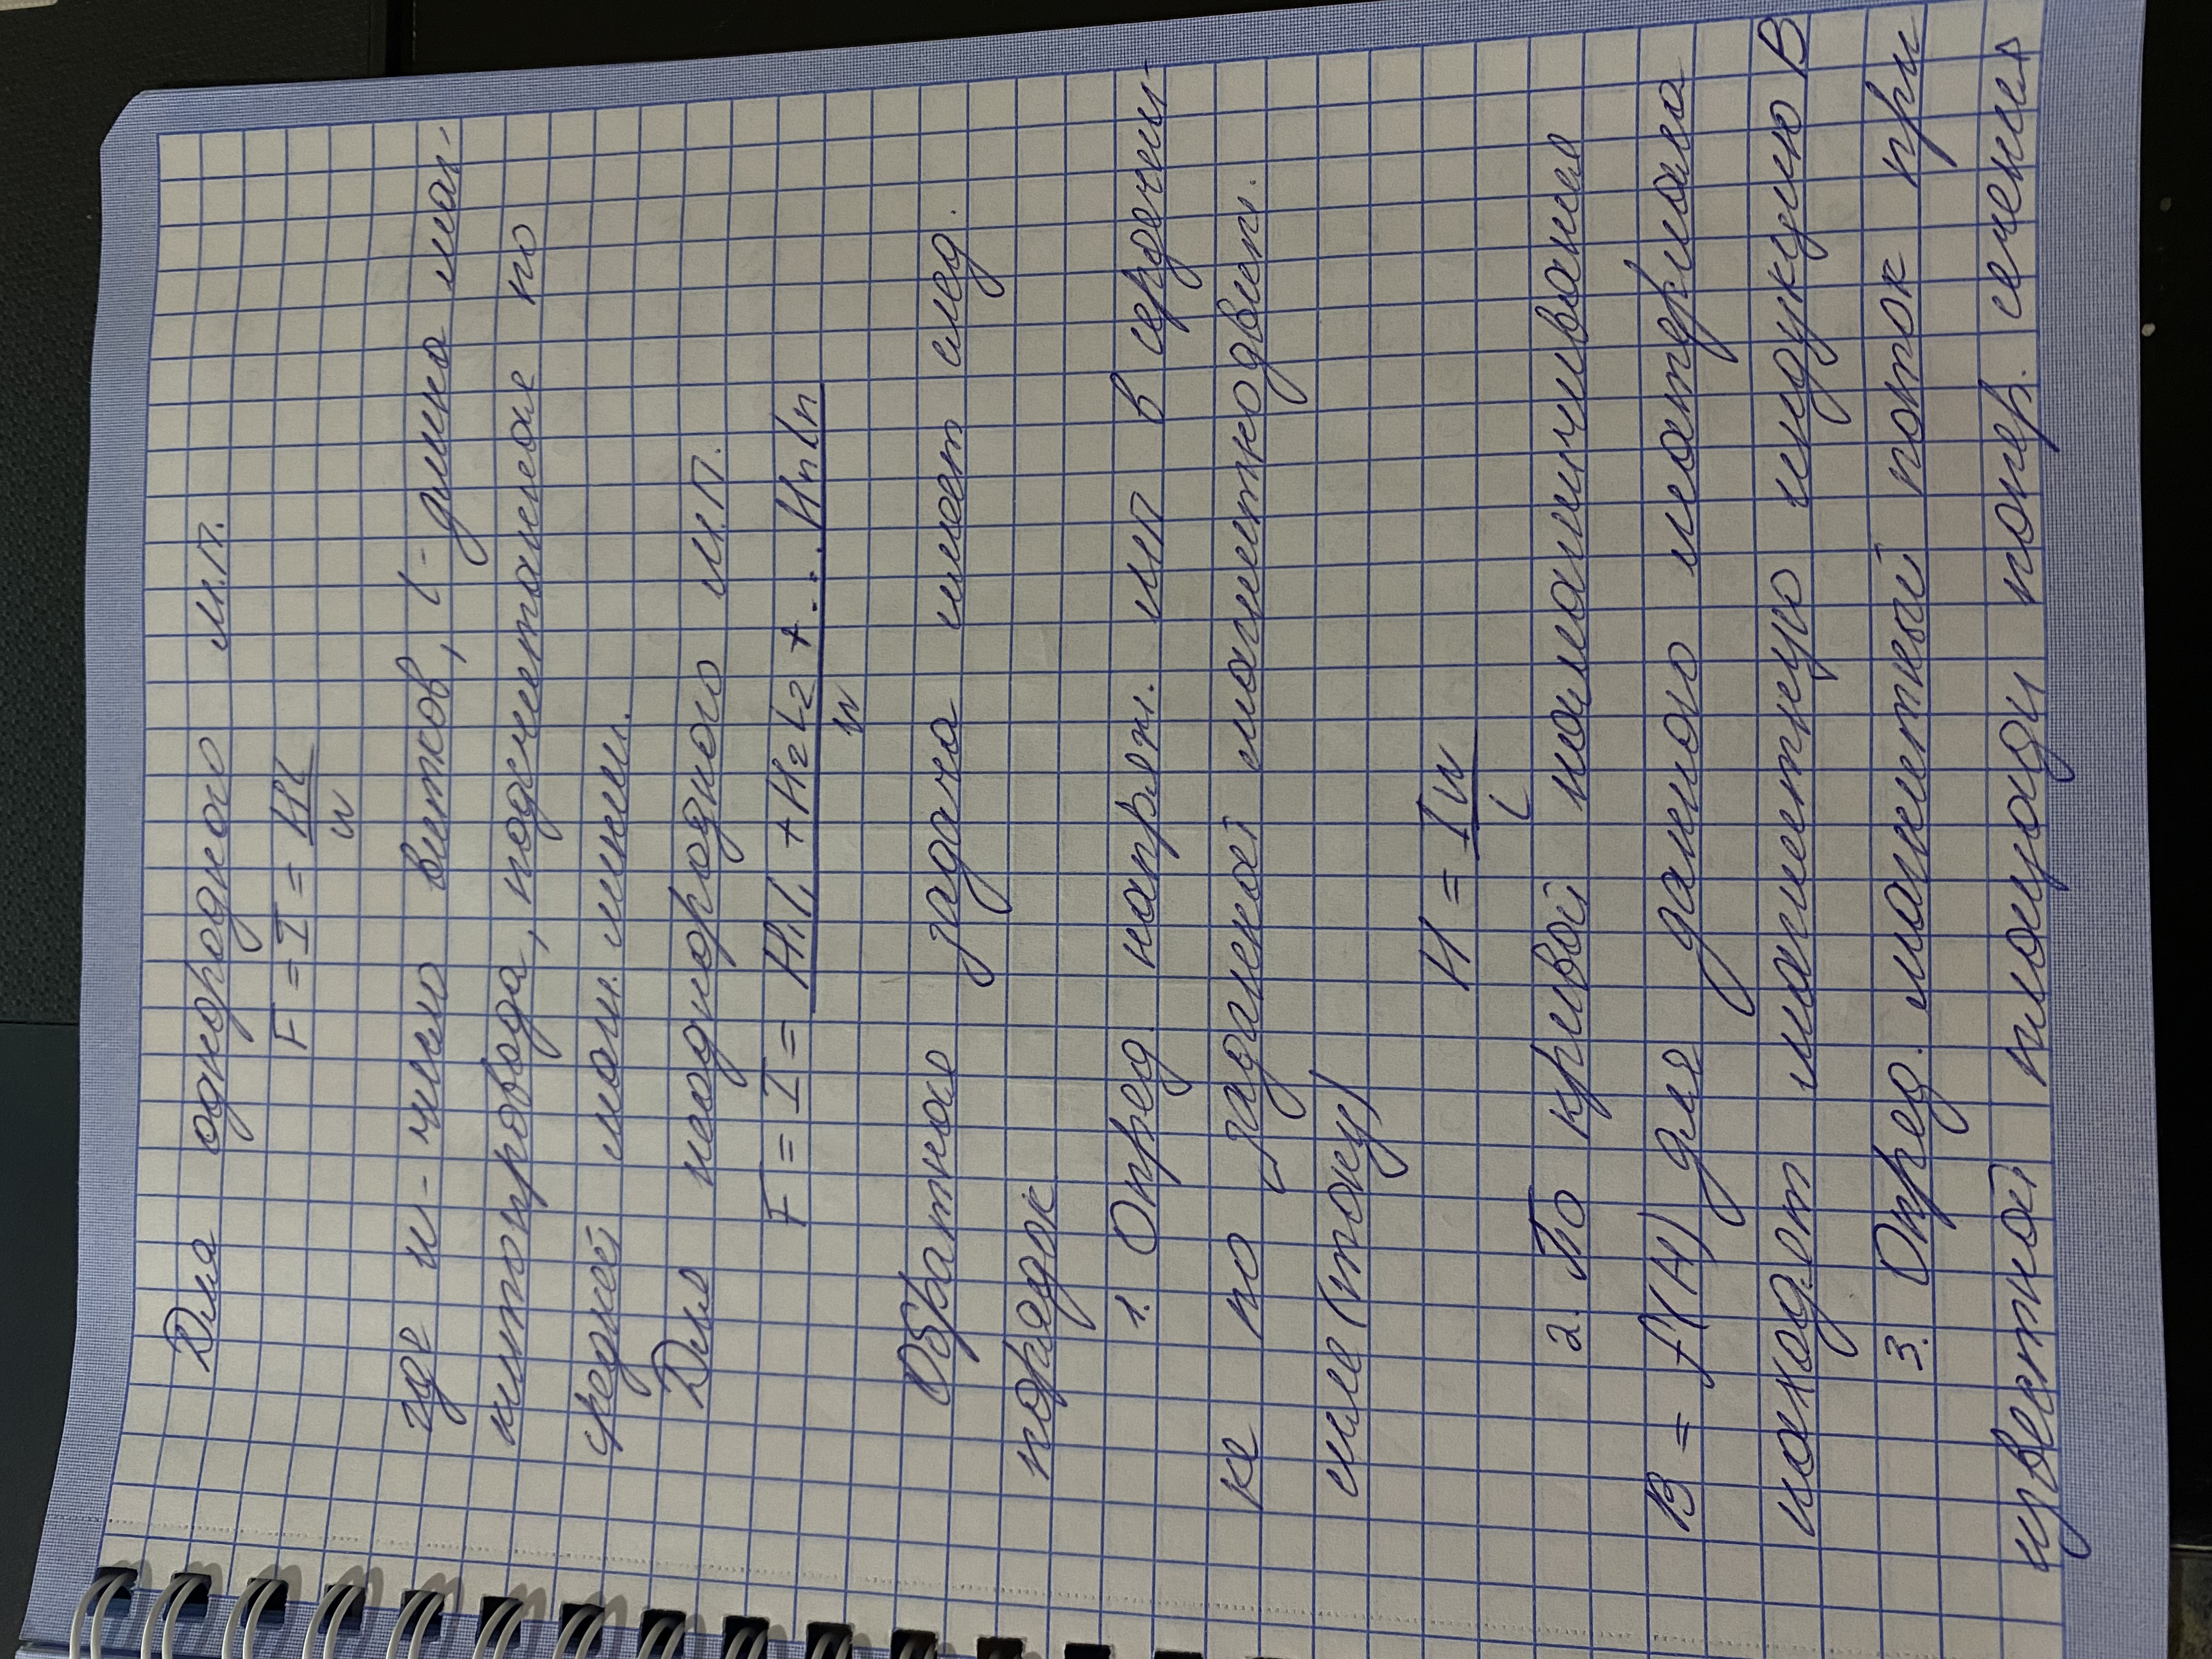 Для однородного м.п.
F = I = Hl/w
где w - число витков, l - длина маг-
нитопровода, подсчетанное по
средней магн. линии.
Для неоднородного м.п.
F = I = H₁l₁ + H₂l₂ + ... Hₙlₙ/w
Обратное задача имеет след.
порядок
1. Опред. напряж. мп в сердечни-
ке по заданной магнитодвиж.
силе (току)
H = Iw/l
2. По кривой намагничивания
B = f(H) для данного материала
находят магнитную индукцию B
3. Опред. магнитный поток при
известной площади попер. сечения